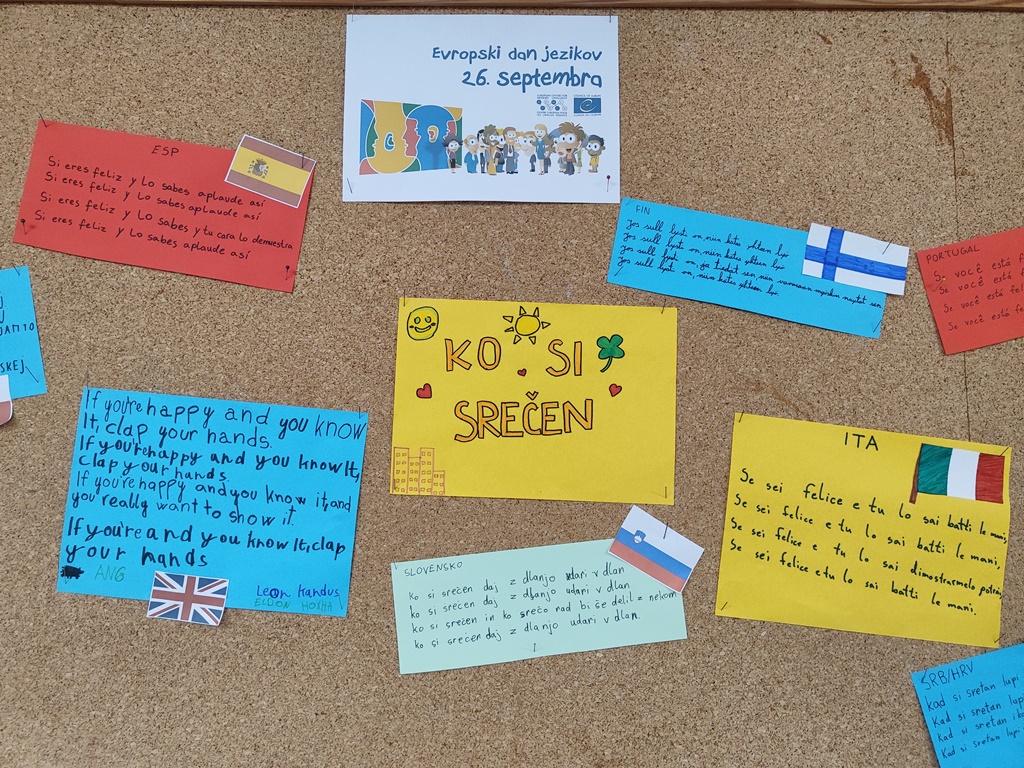 Evropski dan jezikov
26. septembra
ESP
Si eres feliz y Lo sabes aplaude así
Si eres feliz y Lo sabes aplaude así
Si eres feliz y Lo sabes y tu cara lo demuestra
Si eres feliz y Lo sabes aplaude así
FIN
Jos sull lysti on, niin kätes yhteen lyö
Jos sull lysti on, niin kätes yhteen lyö
Jos sull lysti on, ja tiedät sen niin varmaan myöskin näytät sen
Jos sull lysti on, niin kätes yhteen lyö.
PORTUGAL
Se você está f
Se você está
Se você está fel
Se você está fel
J
U
JAM10
SKEJ
KO SI
SREČEN
If you're happy and you know
It, clap your hands.
If you're happy and you know It,
clap your hands.
If you're happy and you know it, and
you really want to show it.
If you're and you know It, clap
your hands
ANG
Leon Kandus
ELDION HOXHA
ITA
Se sei felice e tu lo sai batti le mani,
Se sei felice e tu lo sai batti le mani,
Se sei felice e tu lo sai dimostrarmelo potrai,
Se sei felice e tu lo sai batti le mani.
SLOVENSKO
ko si srečen daj z dlanjo udari v dlan
ko si srečen daj z dlanjo udari v dlan
ko si srečen in ko srečo rad bi še delil z nekom
ko si srečen daj z dlanjo udari v dlan.
SRB/HRV
Kad si sretan lupi
Kad si sretan lup
Kad si sretan i
Kad si sretan lupi